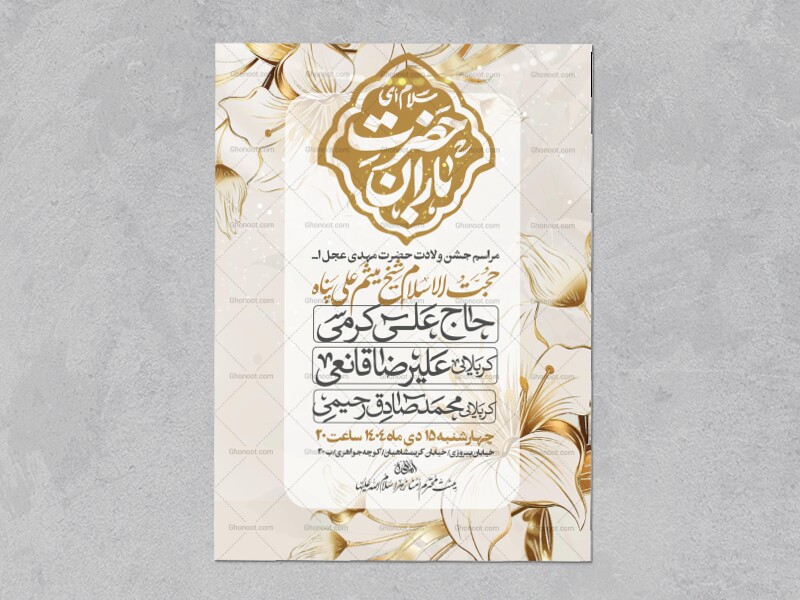 سلام ای
حضرت
باران
مراسم جشن ولادت حضرت مهدی عجل ا...
حجت الاسلام شیخ میثم علی پناه
حاج علی کرمی
کربلائی علیرضا قانعی
کربلائی محمدصادق رحیمی
چهارشنبه ۱۵ دی ماه ۱۴۰۴ ساعت ۲۰
خیابان پیروزی/ خیابان کرمشاهیان/ کوچه جواهری/پ ۲۰
Ghonoot.com